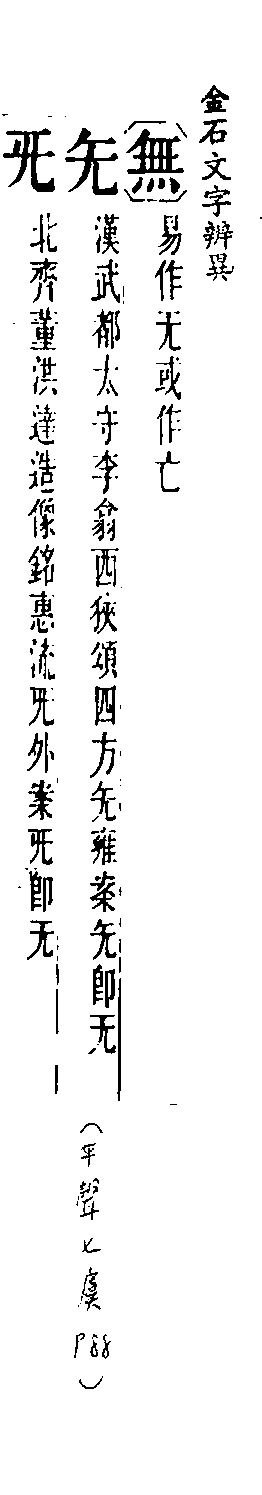 金石文字辨異
〔無〕易作无或作亡
𠘩漢武都太守李翕西狹頌四方无雍案无即无
旡北齊董洪達造像銘惠流旡外案旡即无
(平聲七虞P88)